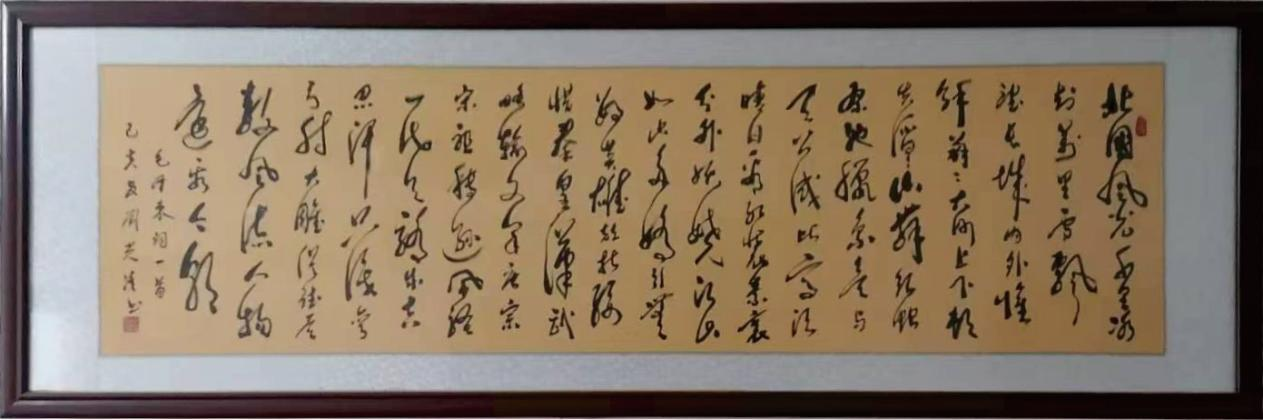 北國风光千里冰
封万里雪飘
望长城内外惟
餘莽〻大河上下顿
失滔〻山舞银蛇
原驰蜡象欲与
天公试比高须
晴日看红装素裹
分外妖娆江山
如此多娇引无
数英雄竞折腰
惜秦皇汉武
略输文采唐宗
宋祖稍逊风骚
一代天骄成吉
思汗只识弯
弓射大雕俱往矣
数风流人物
还看今朝
毛泽东词一首
己亥夏